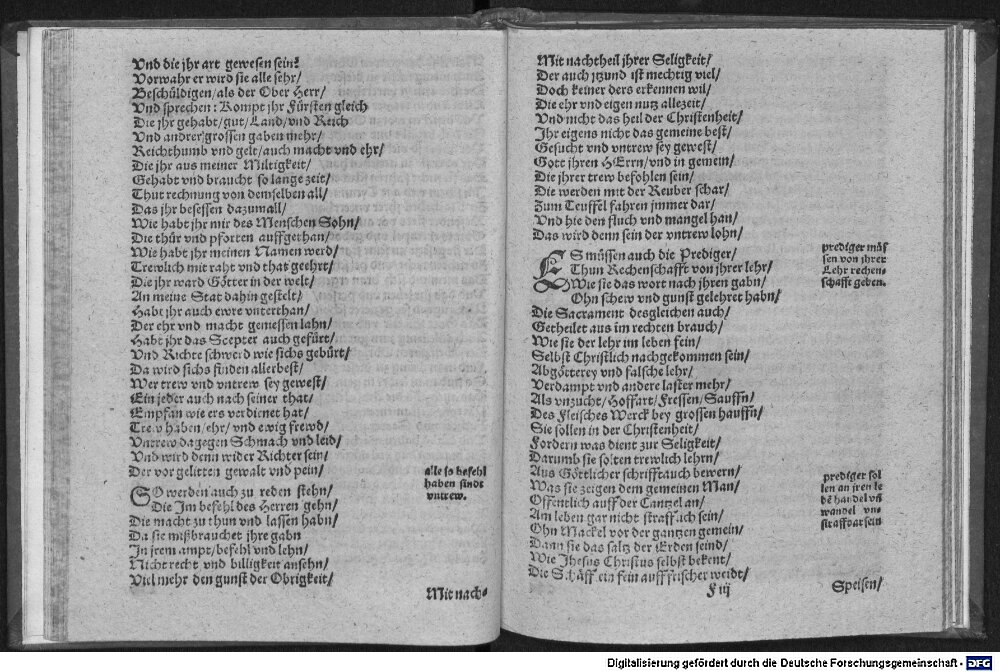 Vnd die jhr art gewesen sein?
Vorwahr er wird sie alle sehr/
Beschüldigen/als der Ober Herr/
Vnd sprechen: Kompt jhr Fürsten gleich
Die jhr gehabt/gut/Land/vnd Reich
Vnd andrer grossen gaben mehr/
Reichthumb vnd gelt/auch macht vnd ehr/
Die jhr aus meiner Miltigkeit/
Gehabt vnd braucht so lange zeit/
Thut rechnung von demselben all/
Das jhr besessen dazumall/
Wie habt jhr mir des Menschen Sohn/
Die thür vnd pforten auffgethan/
Wie habt jhr meinen Namen werd/
Trewlich mit raht vnd that geehrt/
Die jhr ward Götter in der welt/
An meine Stat dahin gestelt/
Habt jhr auch ewre vnterthan/
Der ehr vnd macht geniessen lahn/
Habt jhr das Scepter auch gefürt/
Vnd Richte schwerd wie sichs gebürt/
Da wird sichs finden allerbest/
Wer trew vnd vntrew sey gewest/
Ein jeder auch nach seiner that/
Empfan wie ers verdienet hat/
Trew haben/ehr/vnd ewig frewd/
Vntrew dagegen Schmach vnd leid/
Vnd wird denn wider Richter sein/
Der vor gelitten gewalt vnd pein/
alle so befehl
haben sindt
vntrew.
SO werden auch zu reden stehn/
Die Im befehl des Herren gehn/
Die macht zu thun vnd lassen habn/
Da sie mißbrauchet jhre gabn
In jrem ampt/befehl vnd lehn/
Nicht recht vnd billigkeit ansehn/
Viel mehr den gunst der Obrigkeit/
Mit nach-
Mit nachtheil jhrer Seligkeit/
Der auch jtzund ist mechtig viel/
Doch keiner ders erkennen wil/
Die ehr vnd eigen nutz allezeit/
Vnd nicht das heil der Christenheit/
Ihr eigens nicht das gemeine best/
Gesucht vnd vntrew sey gewest/
Gott jhren HErrn/vnd in gemein/
Die jhrer trew befohlen sein/
Die werden mit der Reuber schar/
Zum Teuffel fahren jmmer dar/
Vnd hie den fluch vnd mangel han/
Das wird denn sein der vntrew lohn/
prediger müs
sen von jhrer
Lehr rechen-
schafft geben.
ES müssen auch die Prediger/
Thun Rechenschafft von jhrer lehr/
Wie sie das wort nach jhren gabn/
Ohn schew vnd gunst gelehret habn/
Die Sacrament desgleichen auch/
Getheilet aus im rechten brauch/
Wie sie der lehr im leben fein/
Selbst Christlich nachgekommen sein/
Abgötterey vnd falsche lehr/
Verdampt vnd andere laster mehr/
Als vnzucht/Hoffart/Fressen/Sauffn/
Des Fleisches Werck bey grossen hauffn/
Sie sollen in der Christenheit/
Fordern was dient zur Seligkeit/
Darumb sie solten trewlich lehrn/
Aus Göttlicher schrifft auch bewern/
Was sie zeigen dem gemeinen Man/
Offentlich auff der Cantzel an/
Am leben gar nicht strafflich sein/
Ohn Mackel vor der gantzen gemein/
Dann sie das saltz der Erden seind/
Wie Jhesus Christus selbst bekent/
Die Schäff ein fein auff frischer weidt/
prediger sol
len an jren le
bē handel vñ
wandel vn-
straffbar sein
F iij
Speisen/
Digitalisierung gefördert durch die Deutsche Forschungsgemeinschaft - DFG